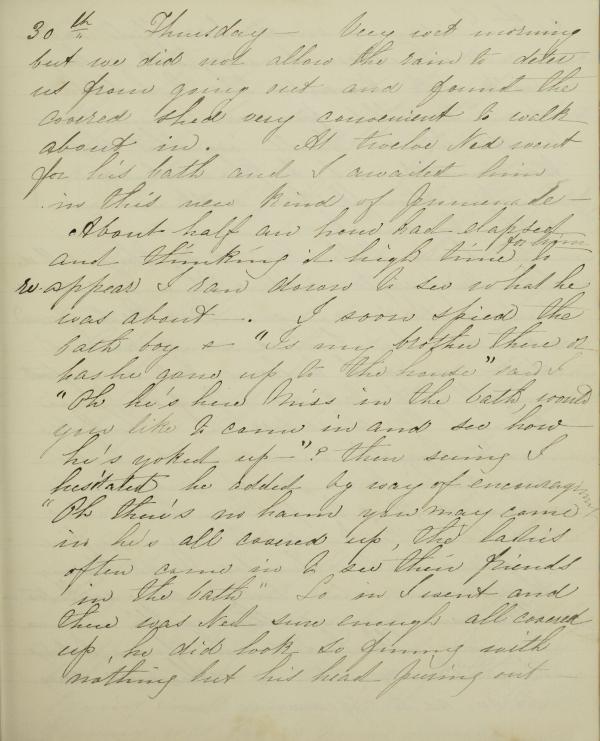 30th Thursday — Very wet morning
but we did not allow the rain to deter
us from going out and found the
covered shed very convenient to walk
about in. At twelve Ned went
for his bath and I awaited him
in this new kind of promenade —
About half an hour had elapsed
and thinking it high time for him to
re-appear I ran down to see what he
was about —. I soon spied the
bath boy & "Is my brother there or
has he gone up to the house" said I
"Oh he's here Miss in the bath, would
you like to come in and see how
he's yoked up —"? then seeing I
hesitated he added by way of encouragement
"Oh there's no harm you may come
in he's all covered up, the ladies
often come in to see their friends
in the bath" So in I went and
there was Ned sure enough all covered
up, he did look so funny with
nothing but his head peering out